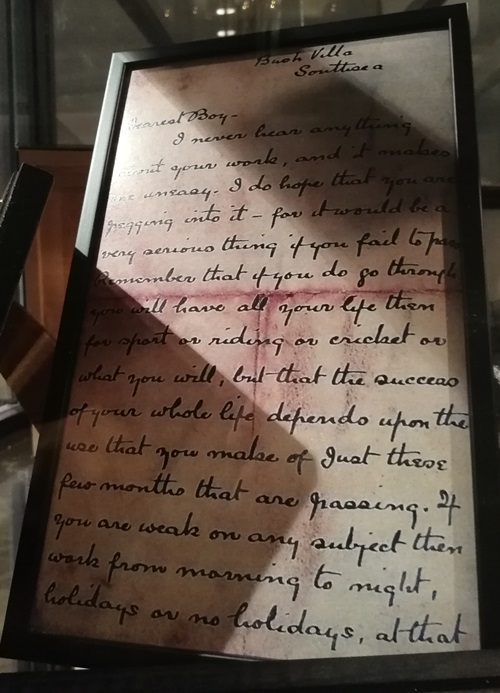 Bush Villa
Southsea
Dearest Boy -
I never hear anything
about your work, and it makes
me uneasy. I do hope that you are
pegging into it - for it would be a
very serious thing if you fail to pass
Remember that if you do go through
you will have all your life then
for sport or riding or cricket or
what you will, but that the success
of your whole life depends upon the
use that you make of Just these
few months that are passing. If
you are weak on any subject then
work from morning to night,
holidays or no holidays, at that